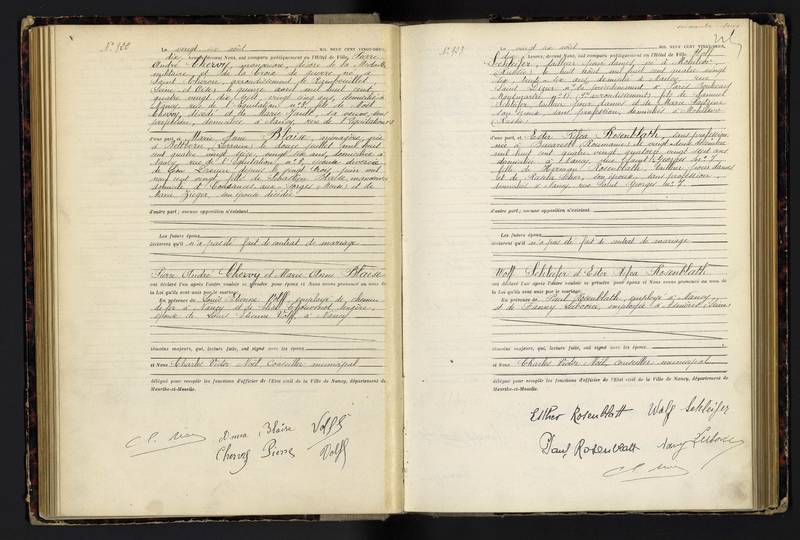 N° 922
Le vingt six août MIL NEUF CENT VINGT-DEUX,
dix heures, devant Nous, ont comparu publiquement en l'Hôtel de Ville, Pierre
André Chervy, manœuvre, décoré de la Médaille
militaire et de la Croix de guerre, né à
Saint arrondissement de Rambouillet,
Seine et Oise, le quinze avril mil huit cent
quatre vingt dix sept, vingt cinq ans, domicilié à
Nancy, rue de l'Equitation n° 2, fils de Noël
Chervy, décédé et de Marie sa veuve, sans
profession, domiciliée à Nancy, rue de l'Equitation n° 2
d'une part, et Marie Anne Blaise, ménagère, née
à Lorraine, le douze juillet mil huit
cent quatre vingt seize, vingt six ans, domiciliée à
Nancy rue de l'Equitation n° 2, divorcée
de Léon depuis le vingt trois juin mil
neuf cent vingt, fille de Sébastien Blaise, manœuvre
domicilié à Cousances aux Forges, Meuse, et de
Marie Zieger, son épouse décédée
d'autre part ; aucune opposition n'existant
Les futurs époux
déclarent qu'il n'a pas été fait de contrat de mariage.
Pierre André Chervy et Marie Anne Blaise
ont déclaré l'un après l'autre vouloir se prendre pour époux et Nous avons prononcé au nom de
la Loi qu'ils sont unis par le mariage.
En présence de Louis Etienne Volff, employé de chemin
de fer à Nancy et de lingère,
épouse de Louis Etienne Volff, à Nancy
témoins majeurs, qui, lecture faite, ont signé avec les époux
et Nous Charles Victor Noël, Conseiller municipal
délégué pour remplir les fonctions d'officier de l'Etat civil de la Ville de Nancy, département de
Meurthe-et-Moselle.
Anna Blaise Volff
Chervy Pierre Volff
N° 923
Le vingt six août MIL NEUF CENT VINGT-DEUX,
heures, devant Nous, ont comparu publiquement en l'Hôtel de Ville, Wolf
Schleifer, tailleur pour dames, né à
le huit août mil huit cent quatre vingt
six, trente six ans, domicilié à Nancy, rue
Saint et précédemment à Paris, boulevard
Montmartre arrondissement, fils de Samuel
Schleifer, tailleur pour dames et de Marie
son épouse, sans profession, domiciliés à
Russie
d'une part, et Ester Rifca Rosenblath, sans profession
née à Bucarest Roumanie, le vingt deux décembre
mil huit cent quatre vingt quatorze, vingt sept ans
domiciliée à Nancy, rue Saint Georges n° 7,
fille de Herman Rosenblath, tailleur pour dames
et de son épouse, sans profession,
domiciliés à Nancy rue Saint Georges n° 7
d'autre part ; aucune opposition n'existant.
Les futurs époux
déclarent qu'il n'a pas été fait de contrat de mariage
Wolf Schleifer et Ester Rifca Rosenblath
ont déclaré l'un après l'autre vouloir se prendre pour époux et Nous avons prononcé au nom de
la Loi qu'ils sont unis par le mariage.
En présence de Paul Rosenblath, employé à Nancy
et de Fanny employée à
témoins majeurs, qui, lecture faite, ont signé avec les époux
et Nous Charles Victor Noël, conseiller municipal
délégué pour remplir les fonctions d'officier de l'Etat civil de la Ville de Nancy, département de
Meurthe-et-Moselle.
Esther Rosenblatt Wolf Schleifer
Paul Rosenblatt